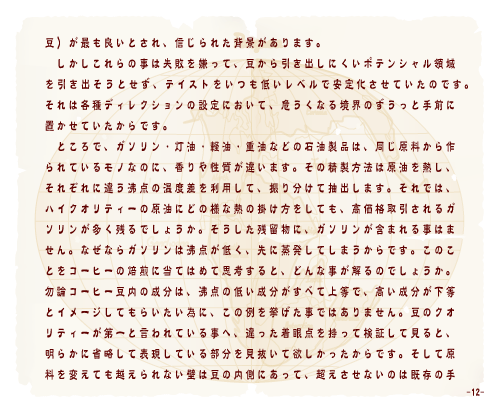 豆）が最も良いとされ、信じられた背景があります。
しかしこれらの事は失敗を嫌って、豆から引き出しにくいポテンシャル領域
を引き出そうとせず、テイストをいつも低いレベルで安定化させていたのです。
それは各種ディレクションの設定において、危うくなる境界のずうっと手前に
置かせていたからです。
ところで、ガソリン・灯油・軽油・重油などの石油製品は、同じ原料から作
られているモノなのに、香りや性質が違います。その精製方法は原油を熱し、
それぞれに違う沸点の温度差を利用して、振り分けて抽出します。それでは、
ハイクオリティーの原油にどの様な熱の掛け方をしても、高価格取引されるガ
ソリンが多く残るでしょうか。そうした残留物に、ガソリンが含まれる事はま
せん。なぜならガソリンは沸点が低く、先に蒸発してしまうからです。このこ
とをコーヒーの焙煎に当てはめて思考すると、どんな事が解るのでしょうか。
勿論コーヒー豆内の成分は、沸点の低い成分がすべて上等で、高い成分が下等
とイメージしてもらいたい為に、この例を挙げた事ではありません。豆のクオ
リティーが第一と言われている事へ、違った着眼点を持って検証して見ると、
明らかに省略して表現している部分を見抜いて欲しかったからです。そして原
料を変えても越えられない壁は豆の内側にあって、超えさせないのは既存の手
-12-